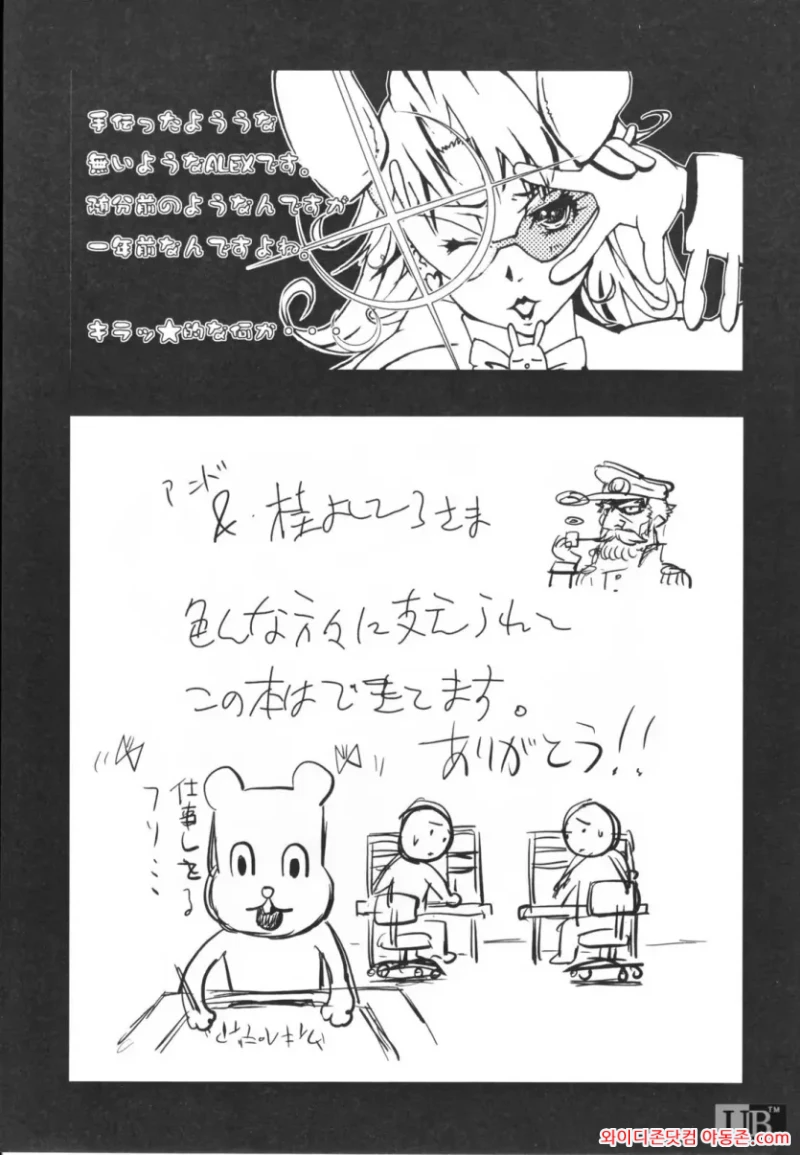 手伝ったようなな
無いようなALEXです。
随分前のようなんですが
一年前なんですよね。
キラッ★的な何か・・・。
アンド
&・桂よしひろさま
色んな方々に支えられて
この本はできてます。
ありがとう!!
仕事しをる
フリミミ
UB™
와이디존닷컴 야동존.com